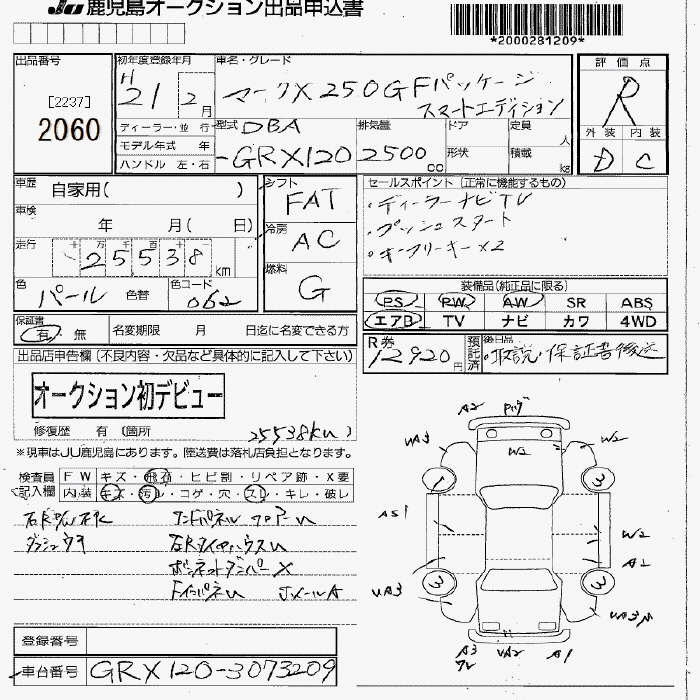 JU 鹿児島オークション出品申込書
*2000281209*
出品番号
[2237]
2060
初年度登録年月
H 21 2月
車名・グレード
マークX 250G Fパッケージ
スマートエディション
評価点
R
外装 内装
D C
ディーラー・並行
モデル年式 年
ハンドル 左・右
型式 DBA
-GRX120
排気量
2500 cc
ドア
形状
定員 人
積載 kg
車歴 自家用( )
車検 年 月( 日)
走行 十 万 千 百 十
25538 km
色 パール 色替
色コード 062
シフト FAT
冷房 AC
燃料 G
セールスポイント (正常に機能するもの)
・ディーラーナビTV
・プッシュスタート
・キーフリーキーX2
装備品(純正品に限る)
PS PW AW SR ABS
エアB TV ナビ カワ 4WD
保証書 有 無
名変期限 月 日迄に名変できる方
R券 12920円
預託済
後日品
・取説・保証書後送
出品店申告欄 (不良内容・欠品など具体的に記入して下さい)
オークション初デビュー
修復歴 有 (箇所 25538km )
*現車はJU鹿児島にあります。陸送費は落札店負担となります。
検査員記入欄
FW キズ・飛石・ヒビ割・リペア跡・X要
内装 キズ・汚レ・コゲ・穴・スレ・キレ・破レ
A2
W2
UA3
W2
3
AS1
W2
A2
UA3
3
3
UA3
A3
UA2
A1
登録番号
車台番号 GRX120-3073209